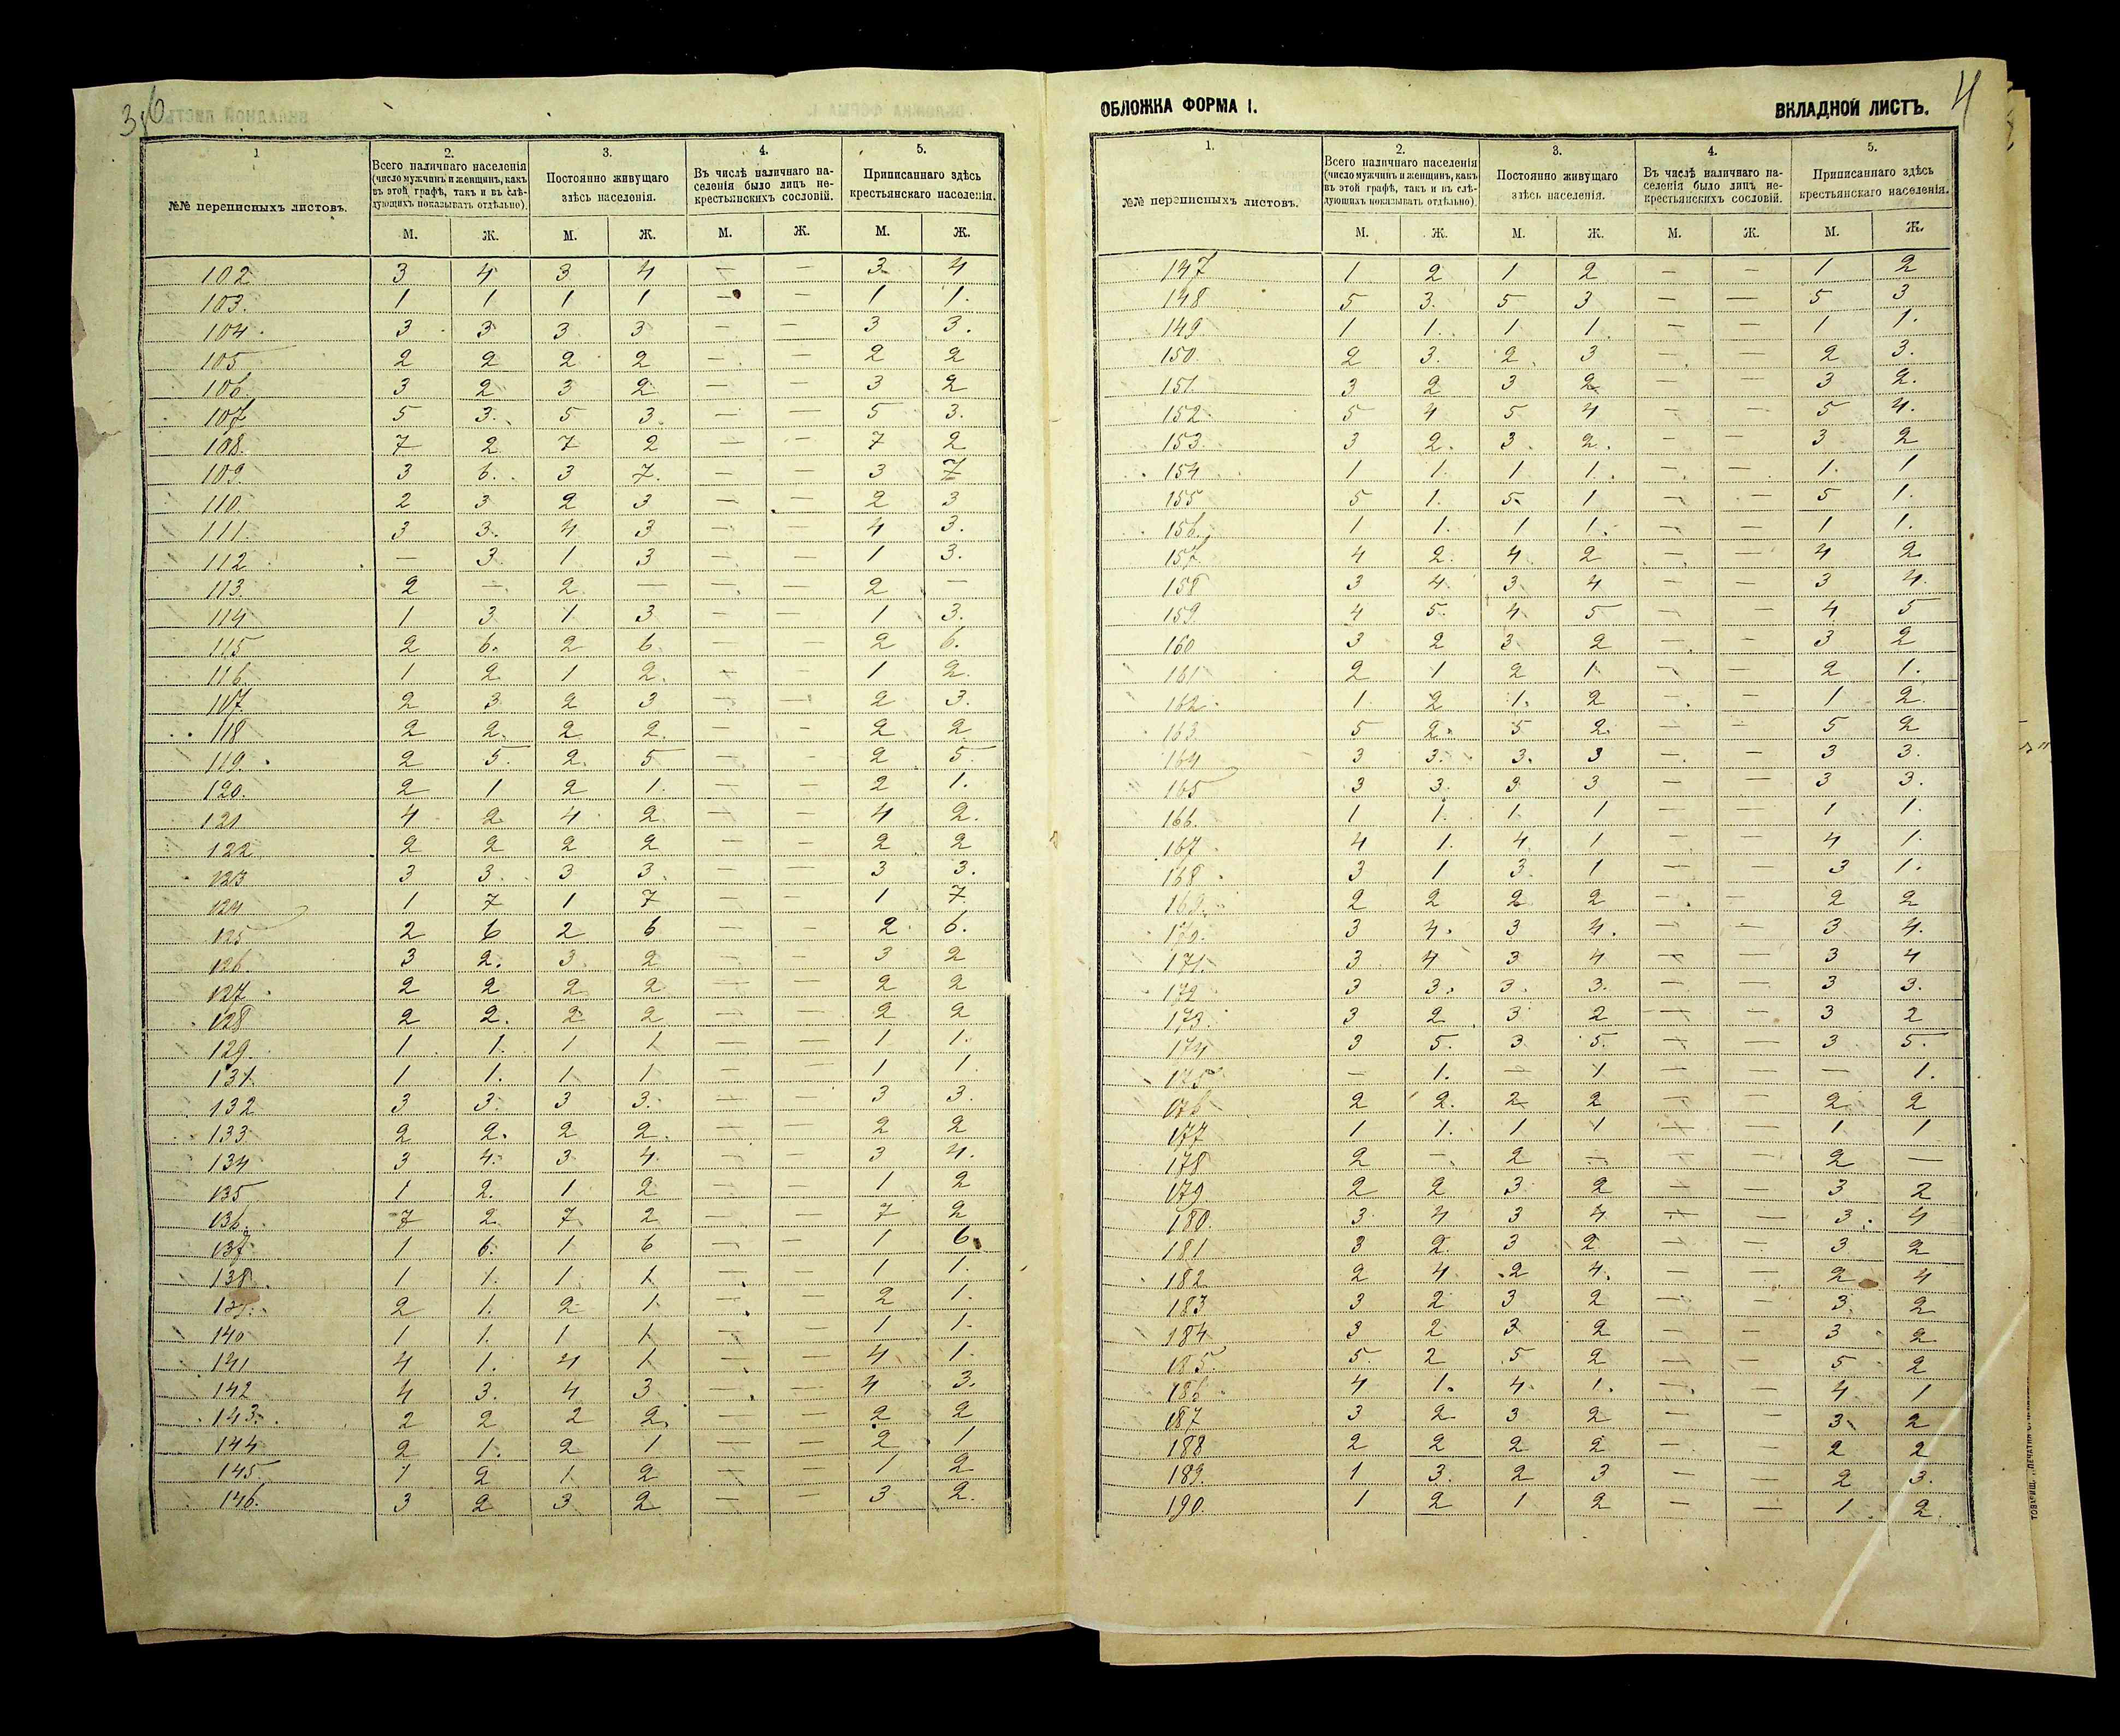 3б
1
№№ переписныхъ листовъ.
2.
Всего наличнаго населенія
(число мужчинъ и женщинъ, какъ
въ этой графѣ, такъ и въ слѣ-
дующихъ показывать отдѣльно).
3.
Постоянно живущаго
здѣсь населенія.
4.
Въ числѣ наличнаго на-
селенія было лицъ не-
крестьянскихъ сословій.
5.
Приписаннаго здѣсь
крестьянскаго населенія.
М. Ж. М. Ж. М. Ж. М. Ж.
102 3 4 3 4 — — 3 4
103. 1 1 1 1 — — 1 1.
104. 3 3 3 3 — — 3 3.
105 2 2 2 2 — — 2 2
106. 3 2 3 2 — — 3 2
107 5 3. 5 3. — — 5 3.
108. 7 2 7 2 — — 7 2
109. 3 6. 3 7. — — 3 7
110. 2 3 2 3 — — 2 3
111. 3 3. 4 3 — — 4 3.
112 — 3. 1 3 — — 1 3.
113. 2 — 2 — — — 2 —
114 1 3 1 3 — — 1 3.
115 2 6. 2 6 — — 2 6.
116. 1 2 1 2. — — 1 2.
117. 2 3 2 3 — — 2 3.
118 2 2. 2 2. — — 2 2
119. 2 5. 2. 5 — — 2 5.
120. 2 1 2 1. — — 2 1.
121 4 2 4 2 — — 4 2.
122 2 2 2 2 — — 2 2
123 3 3. 3 3. — — 3 3.
124 1 7 1 7 — — 1 7.
125 2 6 2 6 — — 2 6.
126 3 2. 3. 2 — — 3 2
127 2 2 2 2 — — 2 2
128 2 2. 2 2 — — 2 2
129. 1 1. 1 1 — — 1 1.
131 1 1. 1 1 — — 1 1
132 3 3. 3 3. — — 3 3.
133 2 2. 2 2. — — 2 2
134 3 4. 3 4 — — 3 4.
135 1 2. 1 2 — — 1 2
136. 7 2 7 2 — — 7 2
137 1 6. 1 6 — — 1 6
138. 1 1. 1 1 — — 1 1.
2 1. 2 1 — — 2 1.
140 1 1. 1 1 — — 1 1.
141 4 1. 4 1 — — 4 1.
142 4 3. 4 3 — — 4 3.
143. 2 2 2 2. — — 2 2
144 2 1. 2 1 — — 2 1
145 1 2 1 2 — — 1 2
146. 3 2 3 2 — — 3 2.
ОБЛОЖКА ФОРМА I.
ВКЛАДНОЙ ЛИСТЪ.
4
1.
№№ переписныхъ листовъ.
2.
Всего наличнаго населенія
(число мужчинъ и женщинъ, какъ
въ этой графѣ, такъ и въ слѣ-
дующихъ показывать отдѣльно).
3.
Постоянно живущаго
здѣсь населенія.
4.
Въ числѣ наличнаго на-
селенія было лицъ не-
крестьянскихъ сословій.
5.
Приписаннаго здѣсь
крестьянскаго населенія.
М. Ж. М. Ж. М. Ж. М. Ж.
147 1 2 1 2 — — 1 2
148 5 3. 5 3 — — 5 3
149 1 1. 1 1. — — 1 1.
150. 2 3. 2. 3 — — 2 3.
151. 3 2 3 2 — — 3 2.
152. 5 4 5 4 — — 5 4.
153. 3 2. 3. 2. — — 3 2
154 1 1. 1 1. — — 1. 1
155 5 1. 5. 1 — — 5 1.
156. 1 1. 1 1. — — 1 1.
157. 4 2. 4 2 — — 4 2.
158 3 4. 3 4 — — 3 4.
159. 4 5. 4 5 — — 4 5
160 3 2 3 2 — — 3 2
161 2 1 2 1 — — 2 1.
162. 1 2 1. 2 — — 1 2.
163 5 2. 5 2. — — 5 2
164 3 3. 3. 3 — — 3 3.
165 3 3. 3 3 — — 3 3.
166. 1 1. 1 1 — — 1 1.
167. 4 1. 4. 1 — — 4 1.
168. 3 1 3. 1 — — 3 1.
169. 2 2 2 2 — — 2 2
170. 3 4. 3 4. — — 3 4.
171. 3 4 3 4 — — 3 4
172 3 3. 3. 3. — — 3 3.
173. 3 2 3 2 — — 3 2
174 3 5. 3 5. — — 3 5.
175 — 1. — 1 — — — 1.
176 2 2. 2 2 — — 2 2
177 1 1. 1 1 — — 1 1
178 2 — 2 — — — 2 —
179. 2 2 3 2 — — 3 2
180. 3 4 3 4 — — 3. 4
181 3 2. 3 2 — — 3 2
182 2 4 2 4. — — 2 4
183 3 2 3 2 — — 3. 2
184 3 2 3 2 — — 3 2
185. 5. 2 5 2 — — 5 2
186. 4 1. 4. 1. — — 4 1
187 3 2 3 2 — — 3 2
188 2 2 2 2 — — 2 2
189. 1 3. 2 3 — — 2 3.
190. 1 2 1 2 — — 1 2.